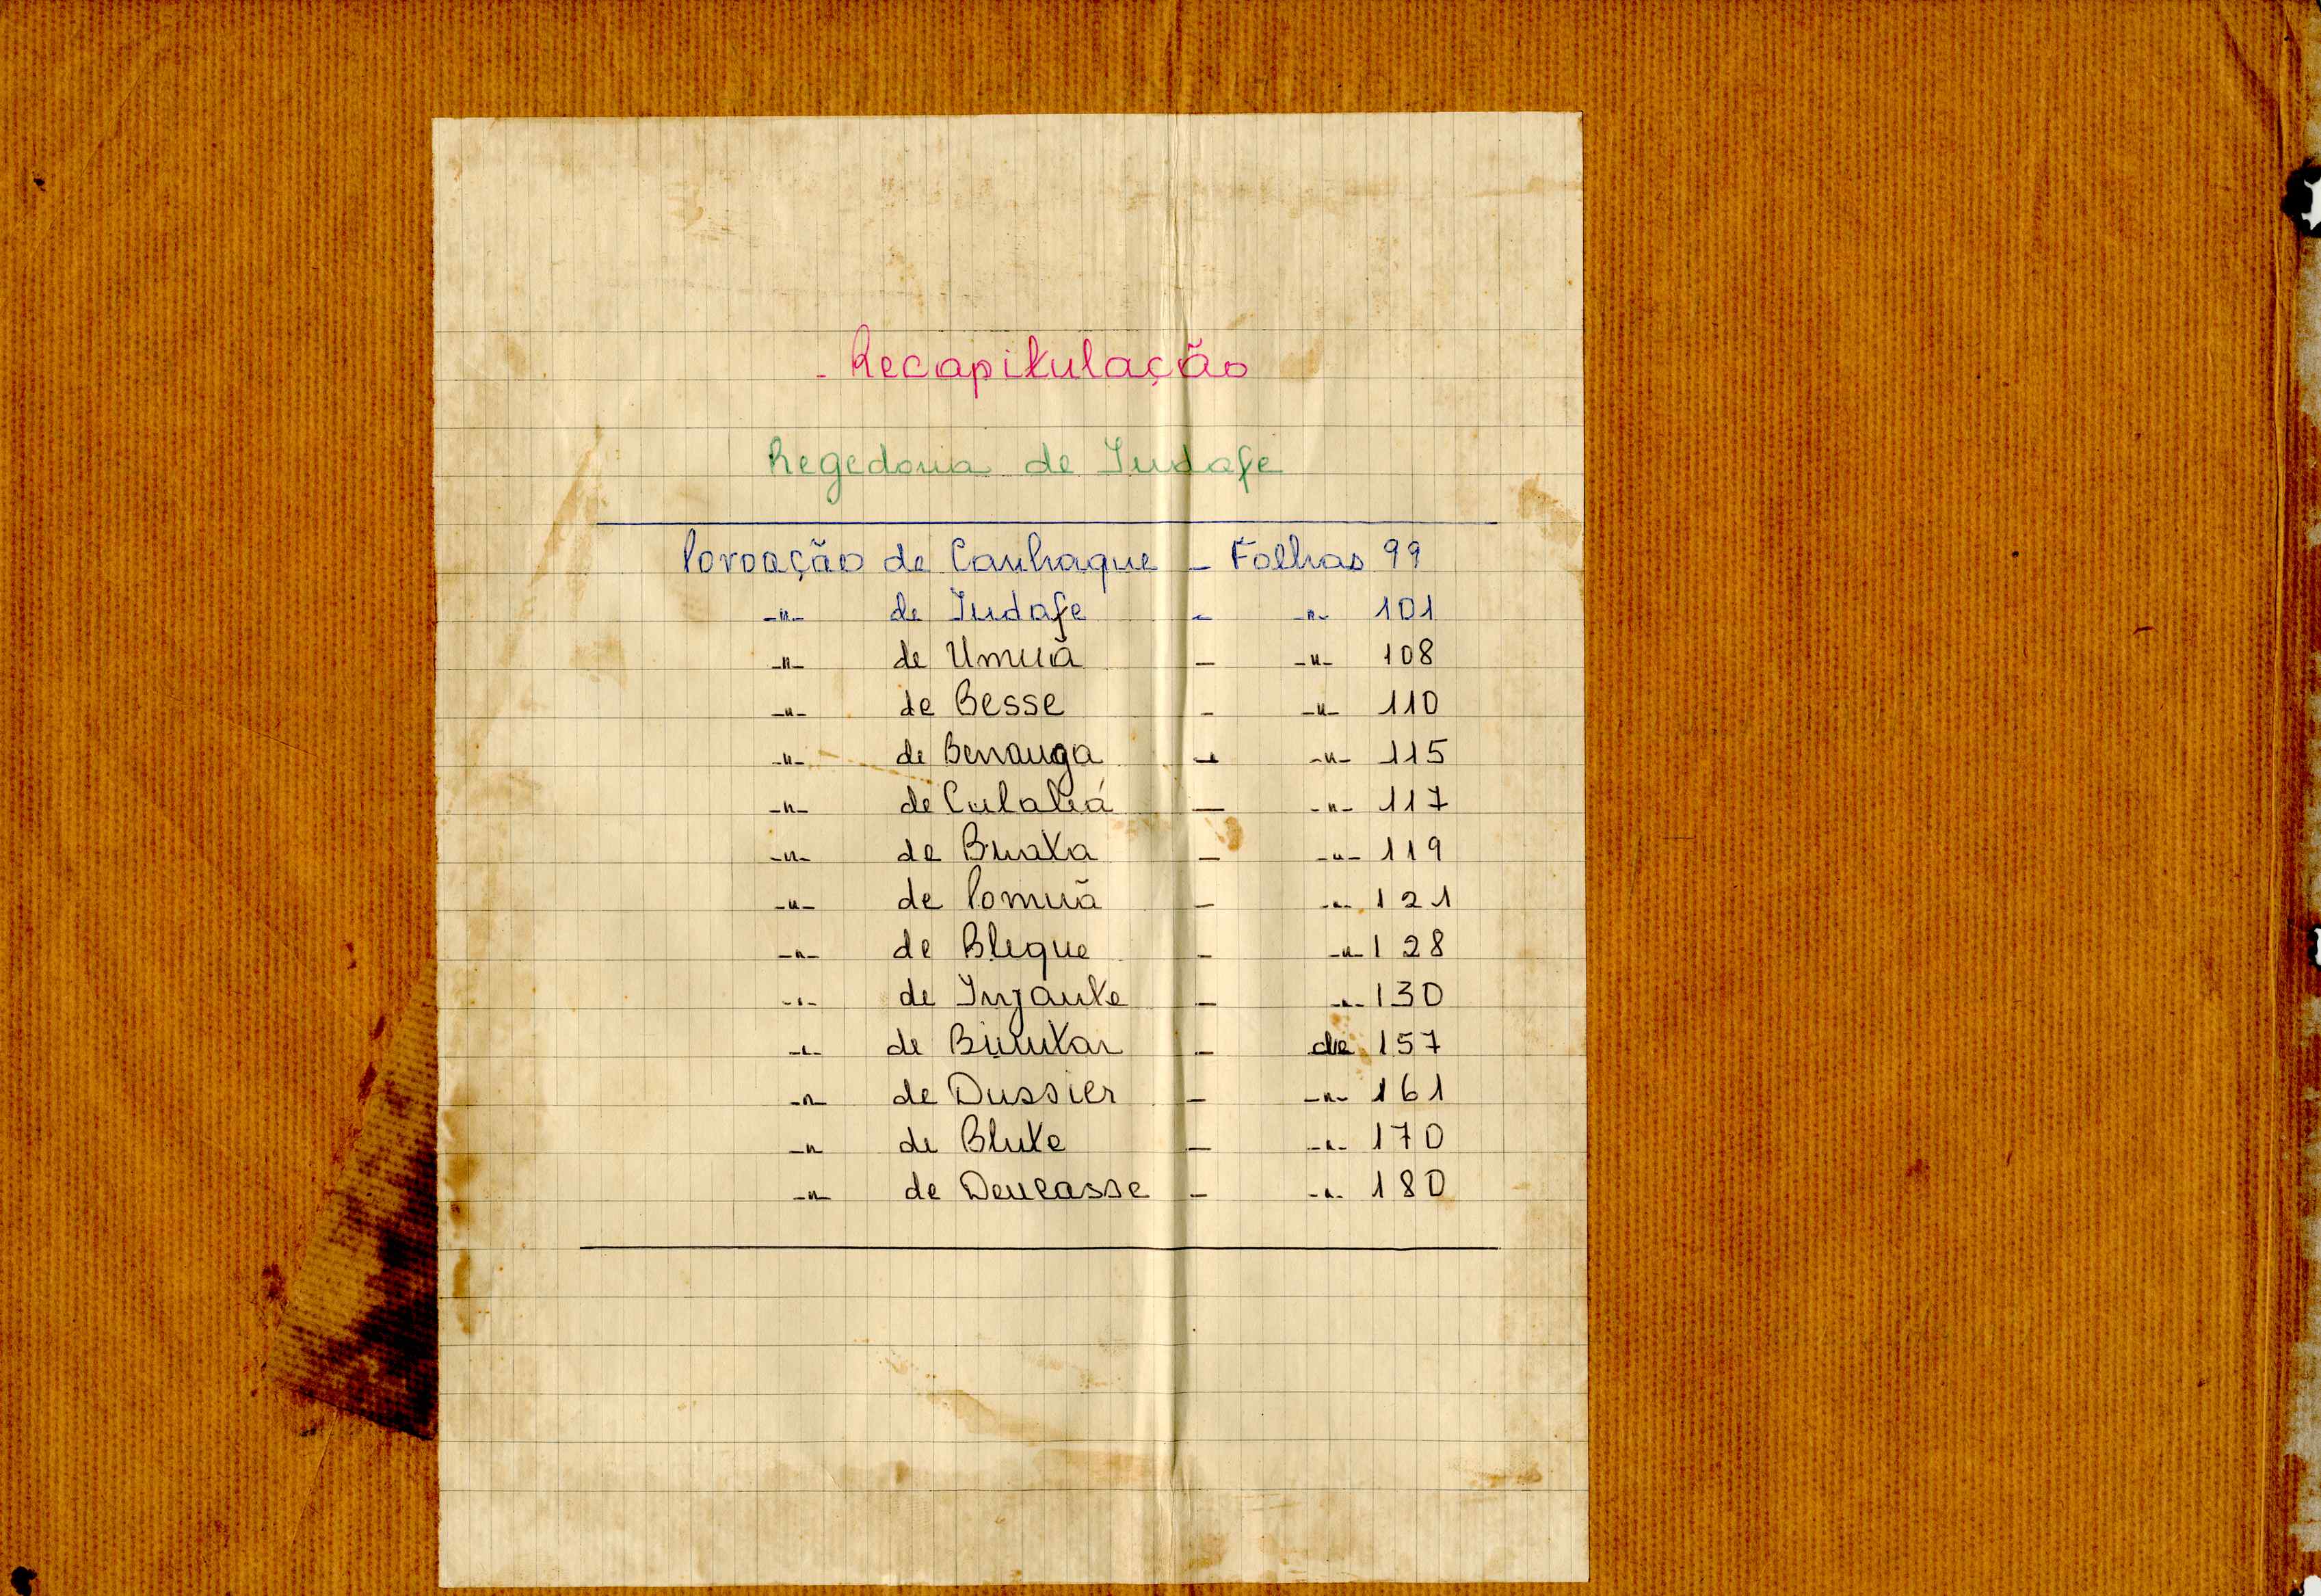 - Recapitulação
Regedoria de Indafe
Povoação de Canhaque - Folhas 99
-"- de Indafe - -"- 101
-"- de Umuã - -"- 108
-"- de Besse - -"- 110
-"- de - -"- 115
-"- de - -"- 117
-"- de - -"- 119
-"- de Pomuã - -"- 121
-"- de Bleque - -"- 128
-"- de Injante - -"- 130
-"- de - de 157
-"- de Dussier - -"- 161
-"- de Blute - -"- 170
-"- de Dencasse - -"- 180